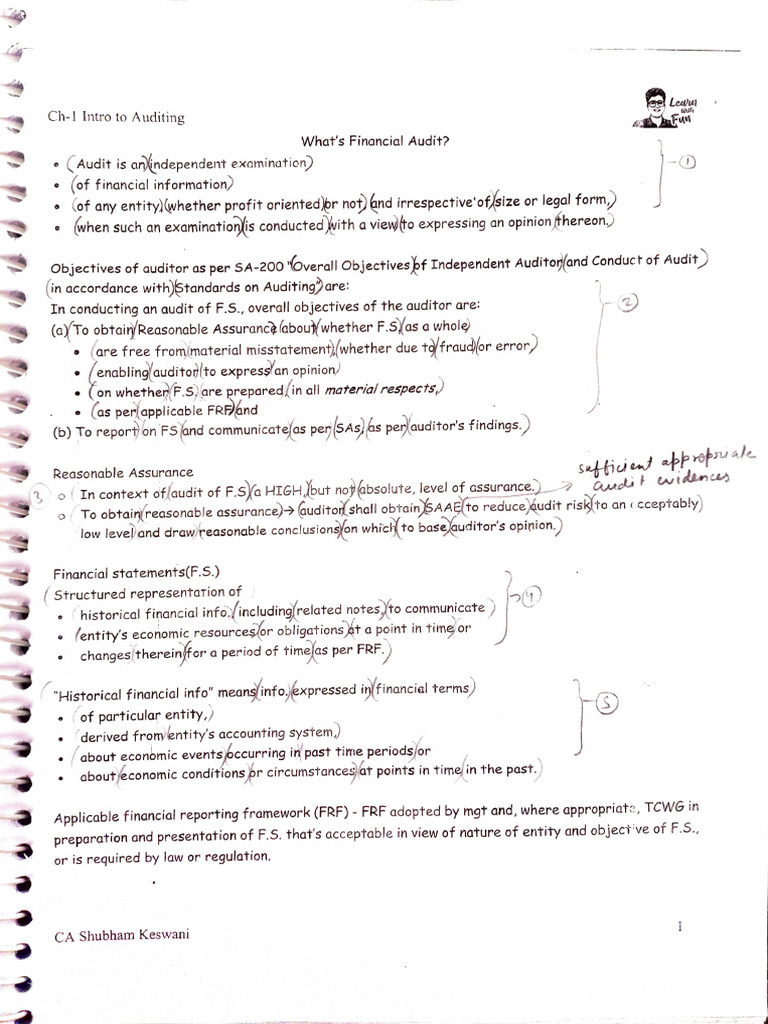 Learn
with
Fun
Ch-1 Intro to Auditing
What's Financial Audit?
• (Audit is an)(independent examination)
• (of financial information)
• (of any entity,)(whether profit oriented)(or not) (and irrespective of)(size or legal form,)
• (when such an examination)(is conducted)(with a view)(to expressing an opinion)(thereon.)
1
Objectives of auditor as per SA-200 "(Overall Objectives)(of Independent Auditor)(and Conduct of Audit)
(in accordance with)(Standards on Auditing") are:
In conducting an audit of F.S., overall objectives of the auditor are:
(a)(To obtain)(Reasonable Assurance)(about)(whether F.S.)(as a whole)
• (are free from)(material misstatement,)(whether due to)(fraud)(or error)
• (enabling)(auditor)(to express)(an opinion)
• (on whether)(F.S.)(are prepared,)(in all material respects,)
• (as per)(applicable FRF)(and
(b) To report)(on FS)(and communicate)(as per)(SAs,)(as per)(auditor's findings.)
2
Reasonable Assurance
3
o (In context of)(audit of F.S)(a HIGH,)(but not)(absolute, level of assurance.)
sufficient appropriate
audit evidences
o (To obtain)(reasonable assurance)→(auditor)(shall obtain)(SAAE)(to reduce)(audit risk)(to an acceptably)
low level)(and draw)(reasonable conclusions)(on which)(to base)(auditor's opinion.)
Financial statements(F.S.)
(Structured representation of
• historical financial info.)(including)(related notes,)(to communicate)
• (entity's economic resources)(or obligations)(at a point in time)(or
• changes)(therein)(for a period of time)(as per FRF.)
4
("Historical financial info" means)(info.)(expressed in)(financial terms)
• (of particular entity,)
• (derived from)(entity's accounting system,)
• (about economic events)(occurring in)(past time periods)(or
• about)(economic conditions)(or circumstances)(at points in time)(in the past.)
5
Applicable financial reporting framework (FRF) - FRF adopted by mgt and, where appropriate, TCWG in
preparation and presentation of F.S. that's acceptable in view of nature of entity and objective of F.S.,
or is required by law or regulation.
CA Shubham Keswani
1